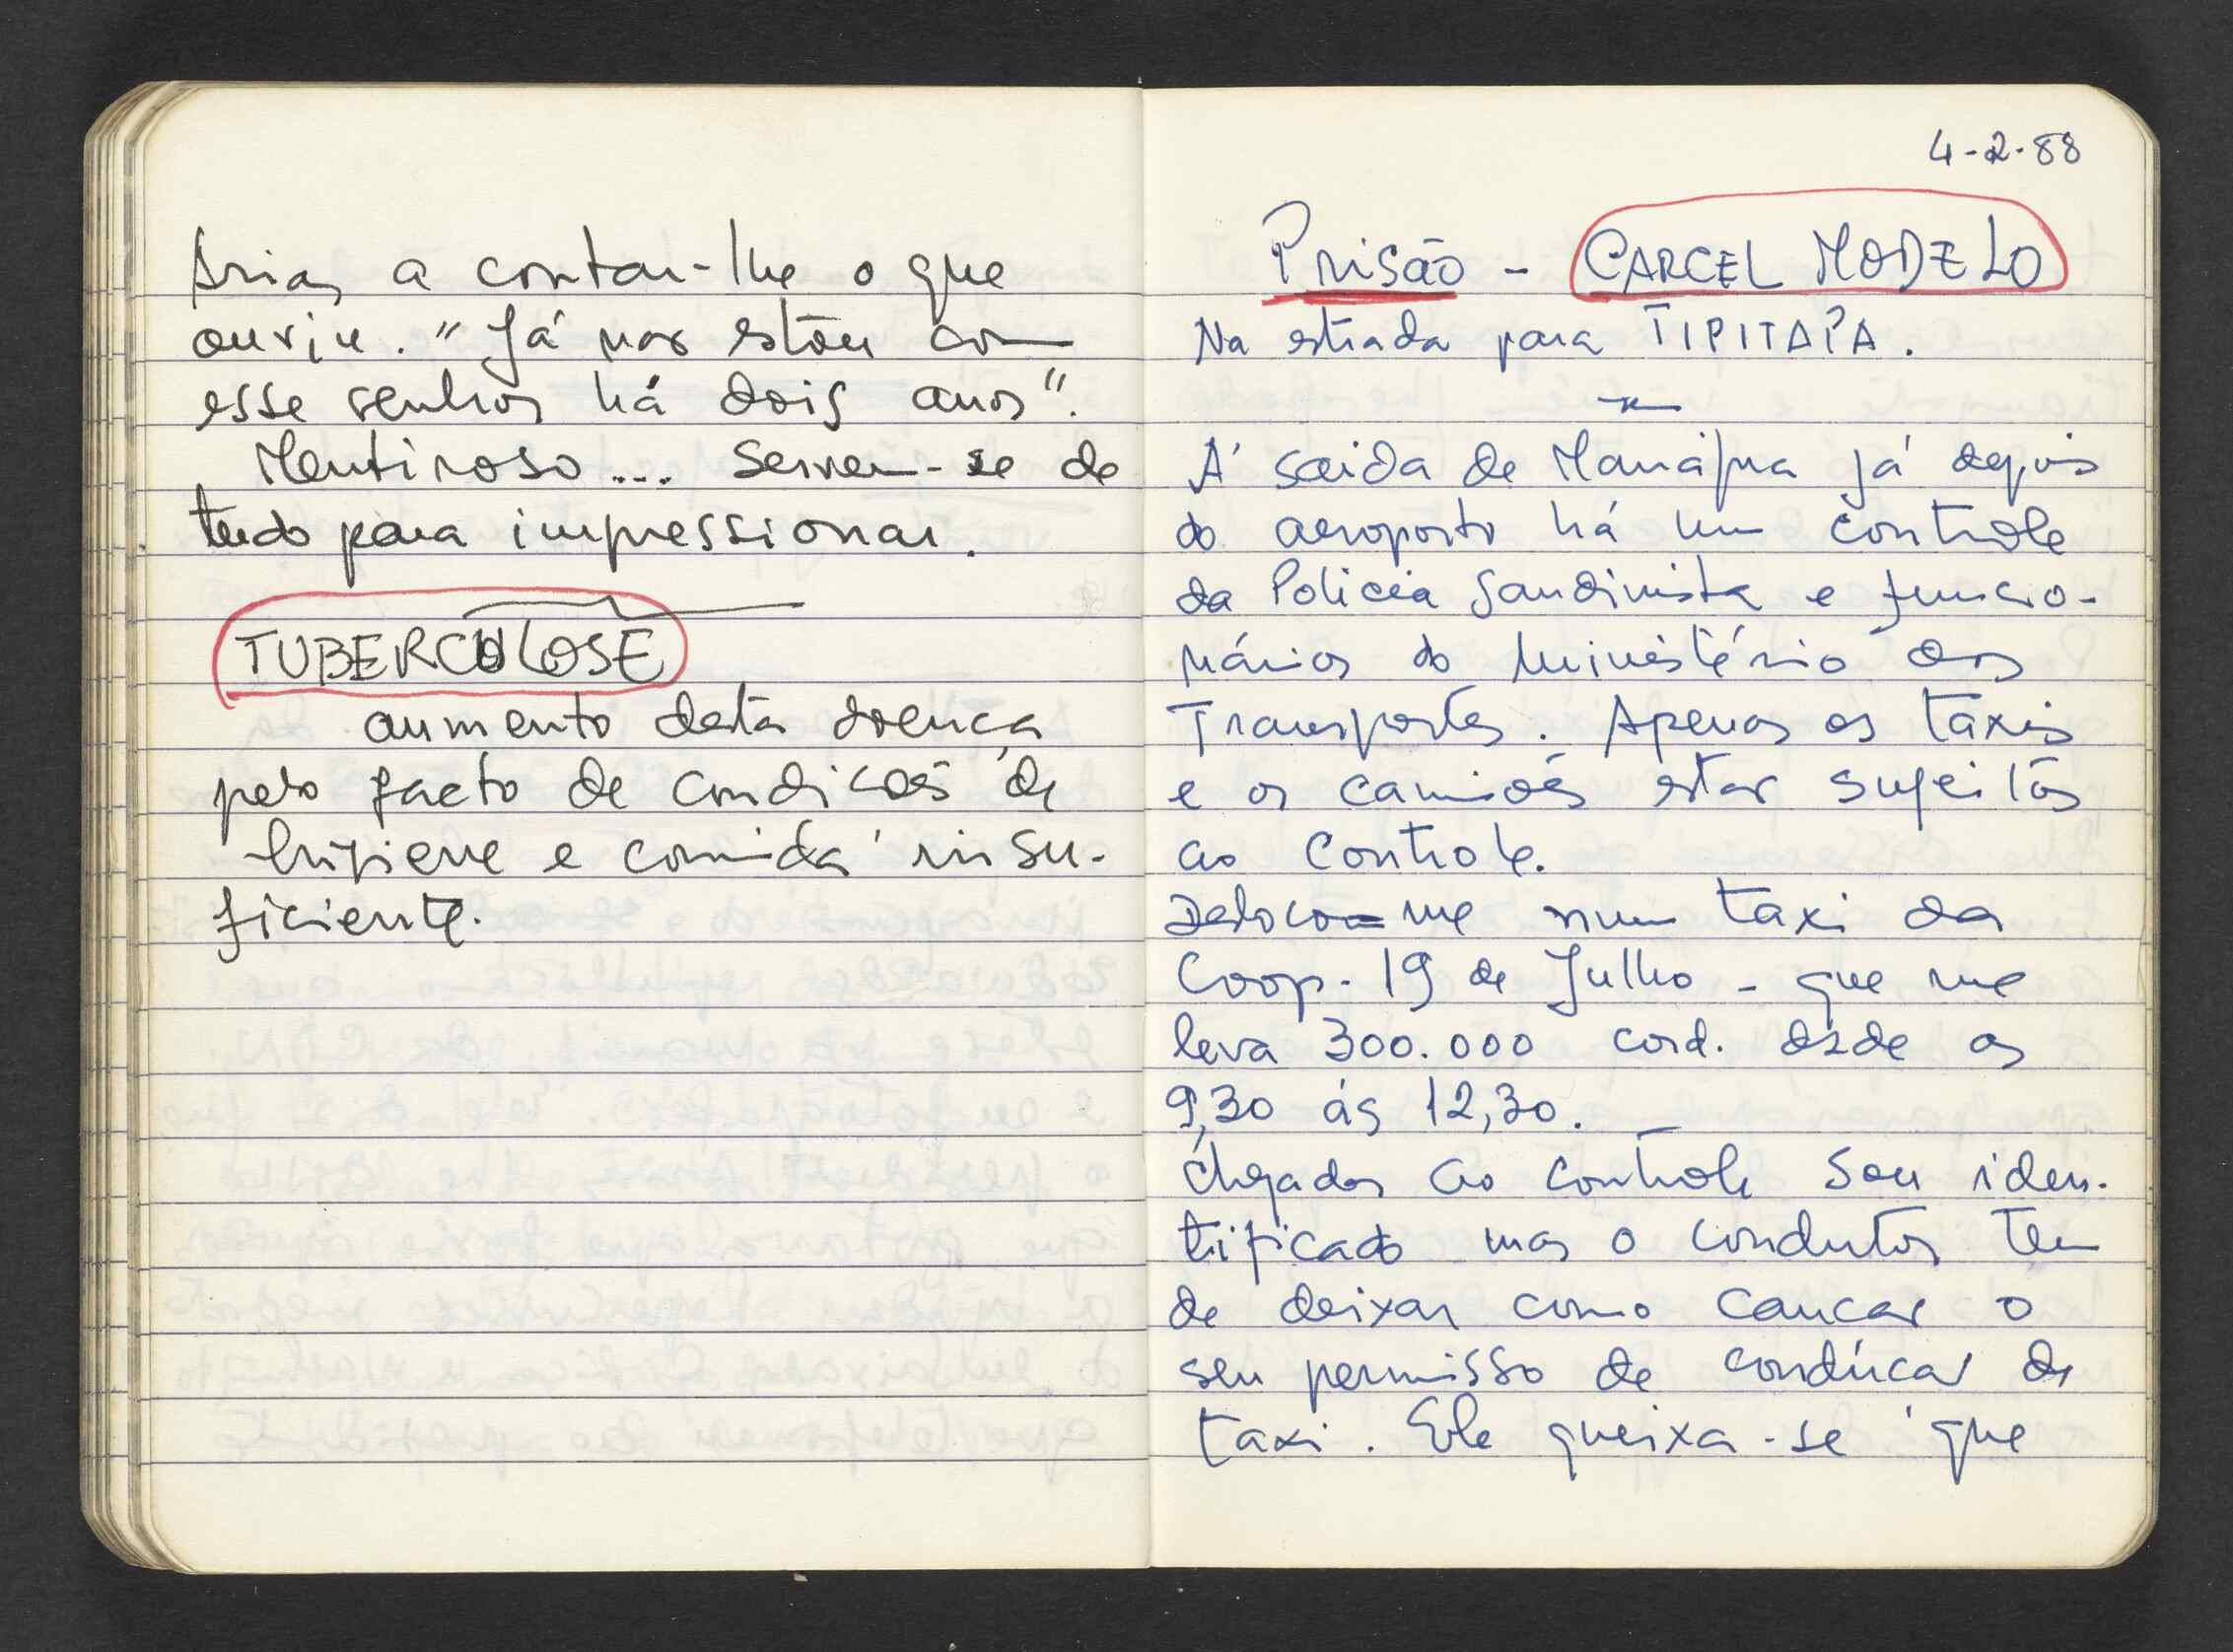 Arias a contar-lhe o que
ouviu. "Já nos estou com
esse senhor há dois anos".
Mentiroso... Servem-se de
tudo para impressionar.
TUBERCULOSE
aumento desta doença
pelo facto de condições de
higiene e comida insu-
ficiente.
4-2-88
Prisão - CARCEL MODELO
Na estrada para TIPITAPA.
Á saida de Manágua já depois
do aeroporto há um controle
da Policia Sandinista e funcio-
nários do Ministério dos
Transportes. Apenas os taxis
e os camiões estão sujeitos
ao Controle.
Desloco-me num taxi da
Coop. 19 de Julho - que me
leva 300.000 cord. desde as
9,30 ás 12,30.
Chegados ao controle sou iden-
tificado mas o condutor tem
de deixar como caução o
seu permisso de condução de
taxi. Ele queixa-se que